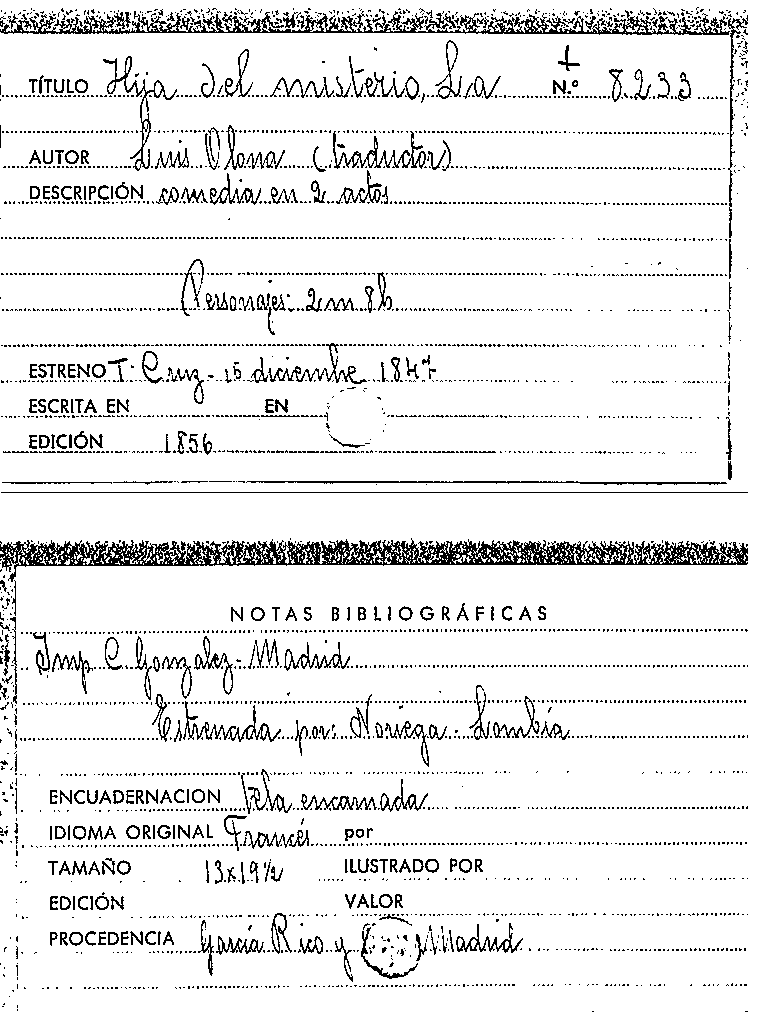 TÍTULO Hija del misterio, La N.º 8.233
AUTOR Luis Olona (traductor)
DESCRIPCIÓN comedia en 2 actos
Personajes: 2m 8h
ESTRENO T. Cruz - 15 diciembre 1847
ESCRITA EN EN
EDICIÓN 1856
NOTAS BIBLIOGRÁFICAS
Imp C. Gonzalez - Madrid
Estrenada por: Noriega - Lombía
ENCUADERNACION tela encarnada
IDIOMA ORIGINAL Francés por
TAMAÑO 13x19½ ILUSTRADO POR
EDICIÓN VALOR
PROCEDENCIA García Rico y Madrid